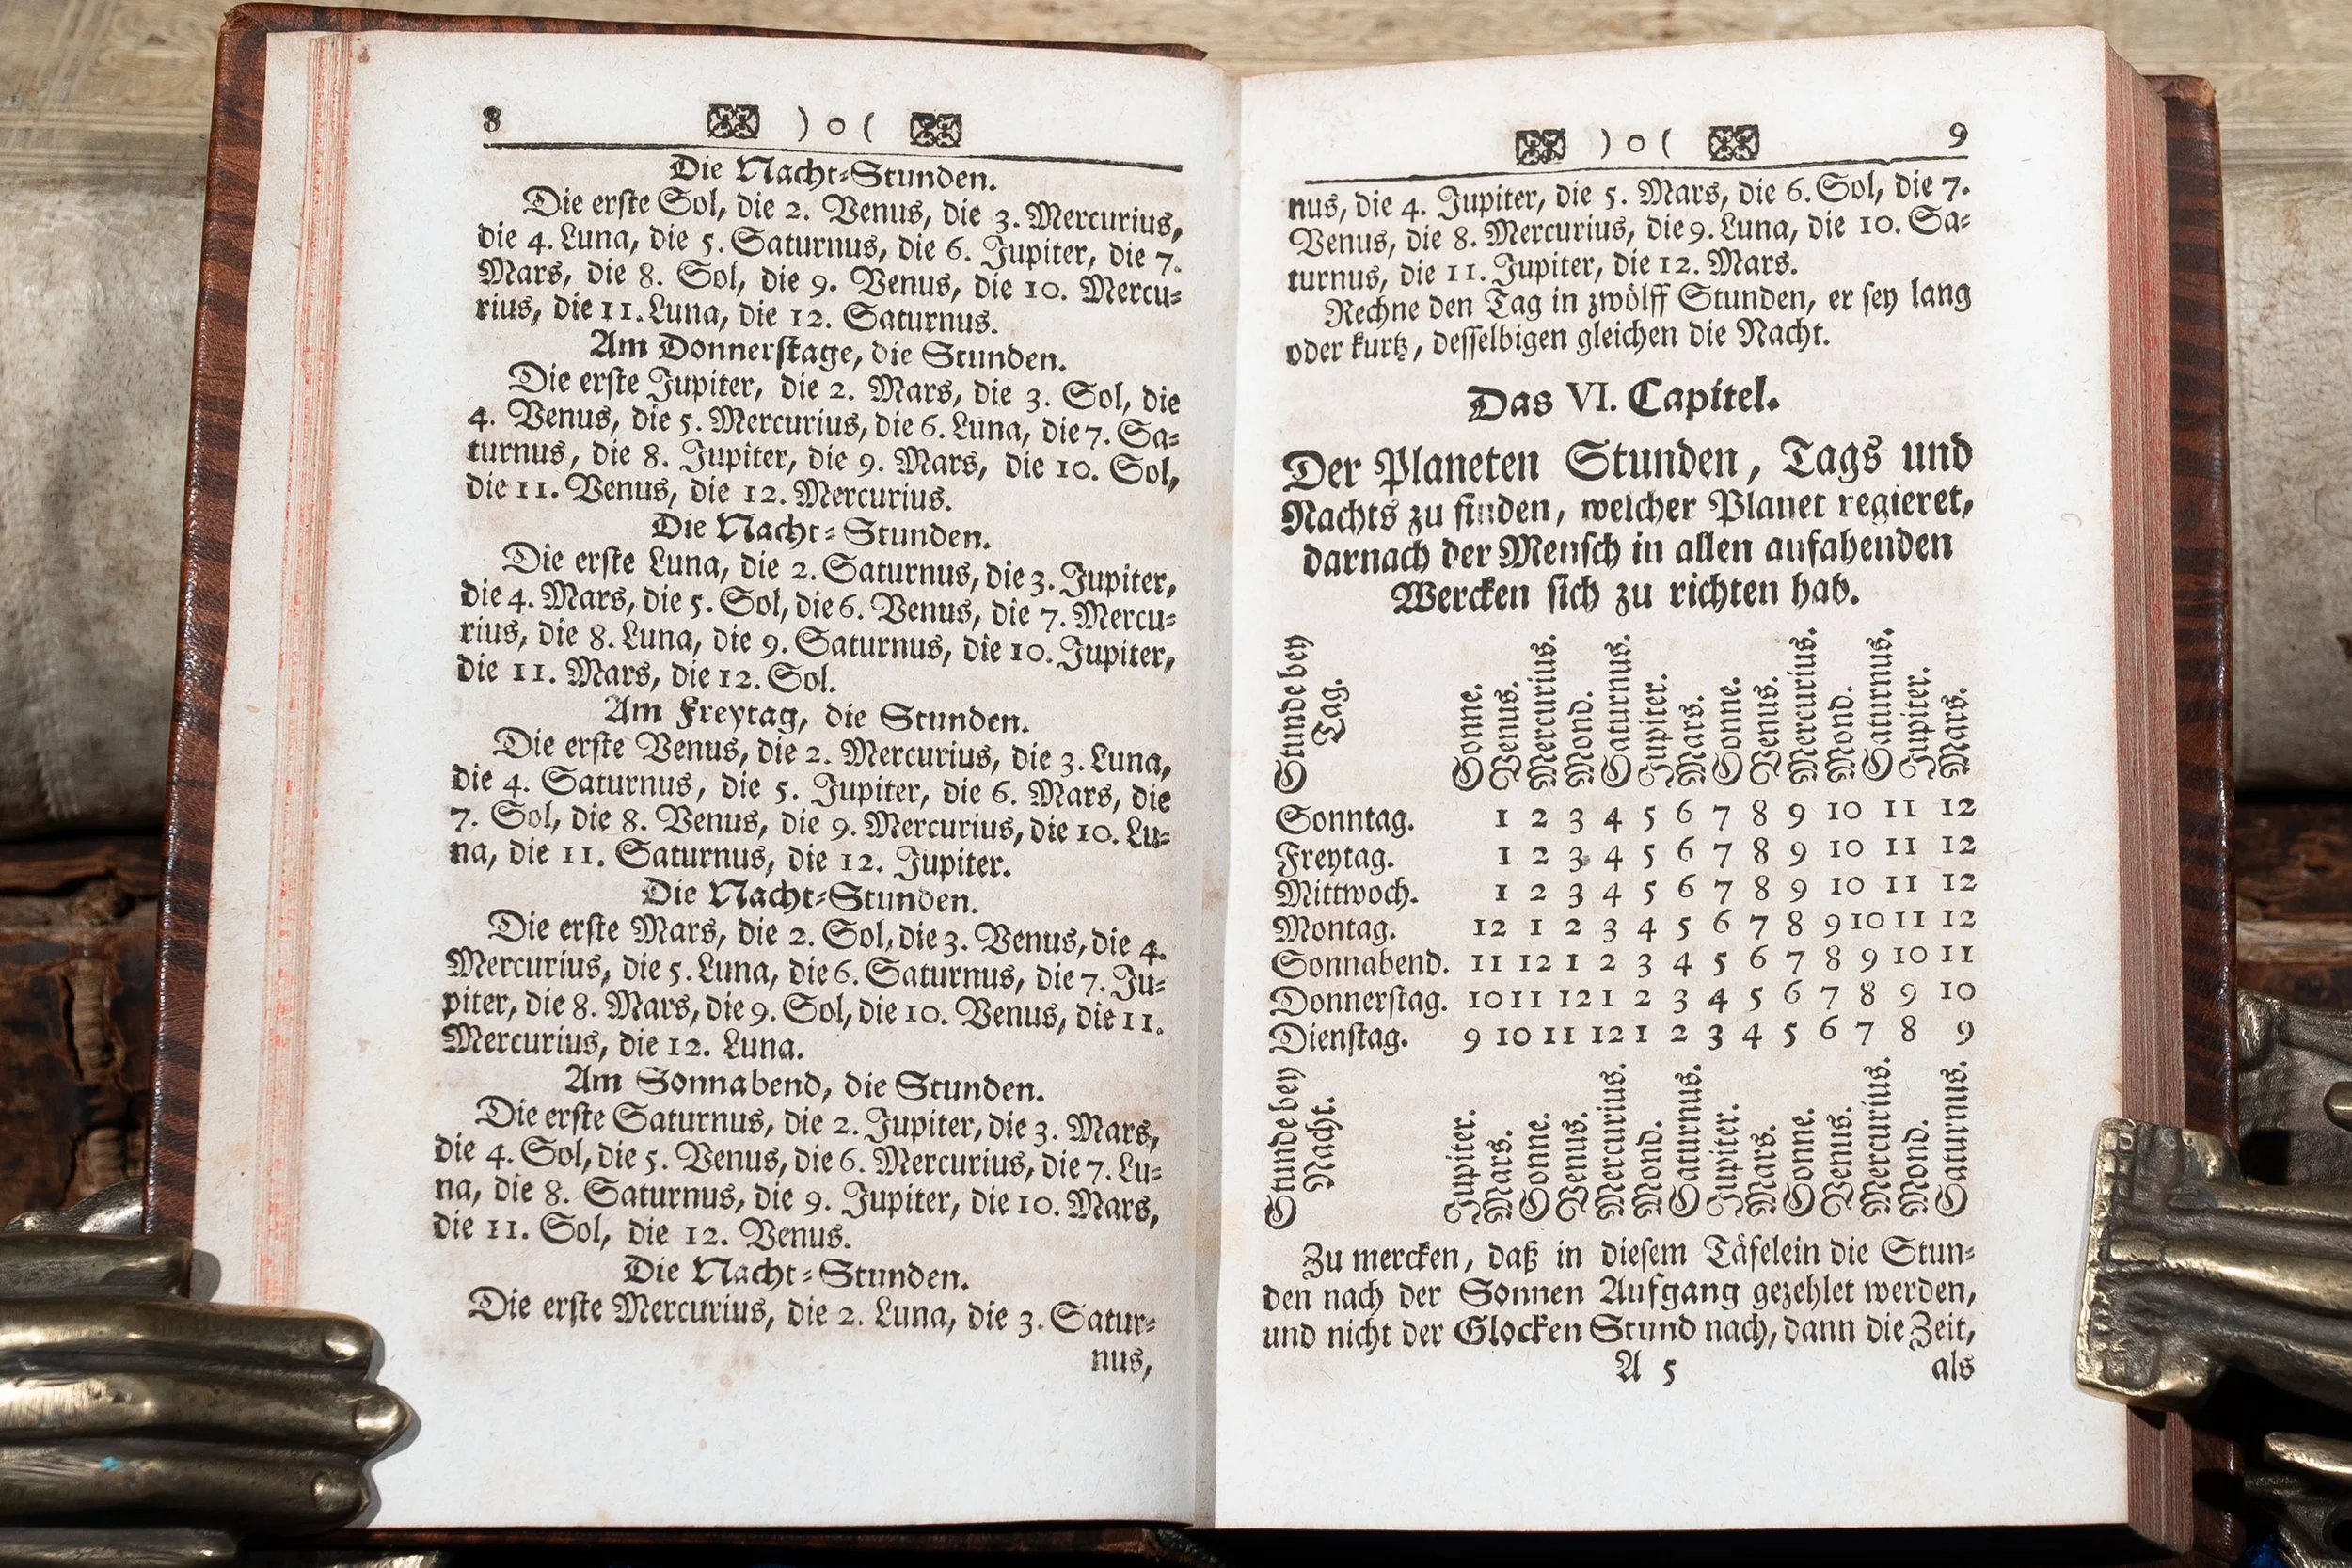 8 ) o (
Die Nacht-Stunden.
Die erste Sol, die 2. Venus, die 3. Mercurius,
die 4. Luna, die 5. Saturnus, die 6. Jupiter, die 7.
Mars, die 8. Sol, die 9. Venus, die 10. Mercu-
rius, die 11. Luna, die 12. Saturnus.
Am Donnerstage, die Stunden.
Die erste Jupiter, die 2. Mars, die 3. Sol, die
4. Venus, die 5. Mercurius, die 6. Luna, die 7. Sa-
turnus, die 8. Jupiter, die 9. Mars, die 10. Sol,
die 11. Venus, die 12. Mercurius.
Die Nacht-Stunden.
Die erste Luna, die 2. Saturnus, die 3. Jupiter,
die 4. Mars, die 5. Sol, die 6. Venus, die 7. Mercu-
rius, die 8. Luna, die 9. Saturnus, die 10. Jupiter,
die 11. Mars, die 12. Sol.
Am Freytag, die Stunden.
Die erste Venus, die 2. Mercurius, die 3. Luna,
die 4. Saturnus, die 5. Jupiter, die 6. Mars, die
7. Sol, die 8. Venus, die 9. Mercurius, die 10. Lu-
na, die 11. Saturnus, die 12. Jupiter.
Die Nacht-Stunden.
Die erste Mars, die 2. Sol, die 3. Venus, die 4.
Mercurius, die 5. Luna, die 6. Saturnus, die 7. Ju-
piter, die 8. Mars, die 9. Sol, die 10. Venus, die 11.
Mercurius, die 12. Luna.
Am Sonnabend, die Stunden.
Die erste Saturnus, die 2. Jupiter, die 3. Mars,
die 4. Sol, die 5. Venus, die 6. Mercurius, die 7. Lu-
na, die 8. Saturnus, die 9. Jupiter, die 10. Mars,
die 11. Sol, die 12. Venus.
Die Nacht-Stunden.
Die erste Mercurius, die 2. Luna, die 3. Satur-
nus,
) o ( 9
nus, die 4. Jupiter, die 5. Mars, die 6. Sol, die 7.
Venus, die 8. Mercurius, die 9. Luna, die 10. Sa-
turnus, die 11. Jupiter, die 12. Mars.
Rechne den Tag in zwölff Stunden, er sey lang
oder kurtz, desselbigen gleichen die Nacht.
Das VI. Capitel.
Der Planeten Stunden, Tags und
Nachts zu finden, welcher Planet regieret,
darnach der Mensch in allen anfahenden
Wercken sich zu richten hab.
Stunde bey
Tag.
Sonne.
Venus.
Mercurius.
Mond.
Saturnus.
Jupiter.
Mars.
Sonne.
Venus.
Mercurius.
Mond.
Saturnus.
Jupiter.
Mars.
Sonntag. 1 2 3 4 5 6 7 8 9 10 11 12
Freytag. 1 2 3 4 5 6 7 8 9 10 11 12
Mittwoch. 1 2 3 4 5 6 7 8 9 10 11 12
Montag. 12 1 2 3 4 5 6 7 8 9 10 11 12
Sonnabend. 11 12 1 2 3 4 5 6 7 8 9 10 11
Donnerstag. 10 11 12 1 2 3 4 5 6 7 8 9 10
Dienstag. 9 10 11 12 1 2 3 4 5 6 7 8 9
Stunde bey
Nacht.
Jupiter.
Mars.
Sonne.
Venus.
Mercurius.
Mond.
Saturnus.
Jupiter.
Mars.
Sonne.
Venus.
Mercurius.
Mond.
Saturnus.
Zu mercken, daß in diesem Täfelein die Stun-
den nach der Sonnen Aufgang gezehlet werden,
und nicht der Glocken Stund nach, dann die Zeit,
A 5 als